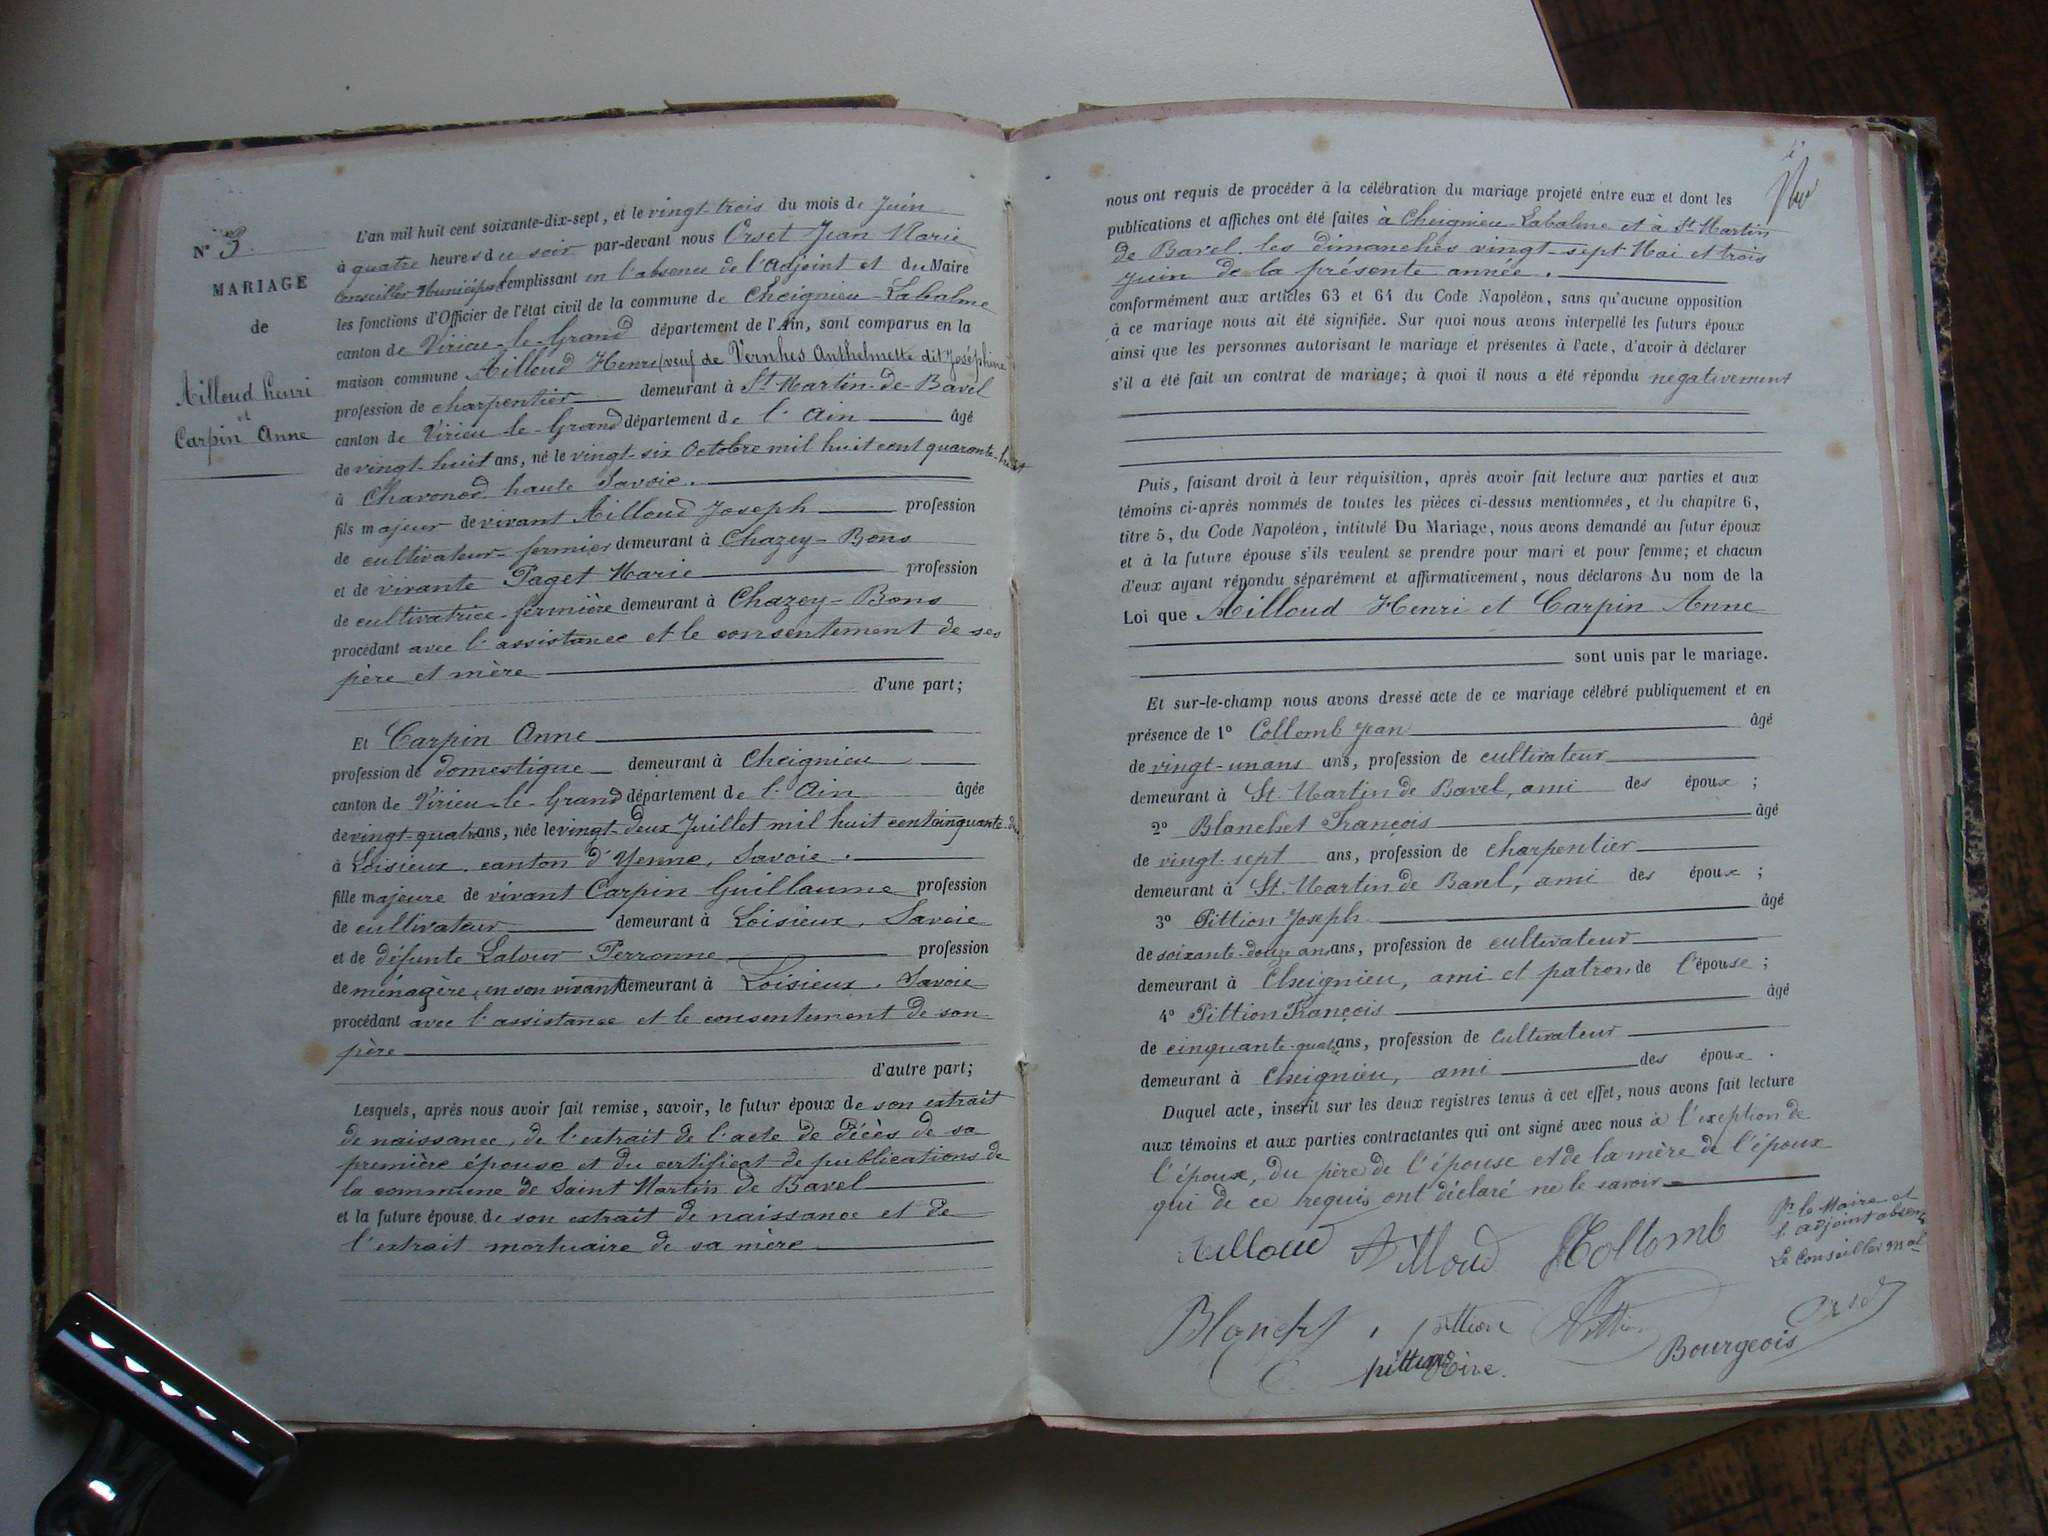 N° 3.
MARIAGE
de
Ailloud Henri
et
Carpin Anne
L'an mil huit cent soixante-dix-sept, et le vingt-trois du mois de Juin
à quatre heures du soir par-devant nous Orset Jean Marie
Conseiller Municipal remplissant en l'absence de l'Adjoint et du Maire
les fonctions d'Officier de l'état civil de la commune de Cheignieu-Labalme
canton de Virieu-le-Grand département de l'Ain, sont comparus en la
maison commune Ailloud Henri (veuf de Vernhes Anthelmette dit Joséphine
profession de charpentier demeurant à St Martin-de-Bavel
canton de Virieu-le-Grand département de l'Ain âgé
de vingt-huit ans, né le vingt-six Octobre mil huit cent quarante-huit
à Chavanod haute Savoie.
fils majeur de vivant Ailloud Joseph profession
de cultivateur-fermier demeurant à Chazey-Bons
et de vivante Paget Marie profession
de cultivatrice-fermière demeurant à Chazey-Bons
procédant avec l'assistance et le consentement de ses
père et mère
d'une part;
Et Carpin Anne
profession de domestique demeurant à Cheignieu
canton de Virieu-le-Grand département de l'Ain âgée
de vingt-quatre ans, née le vingt-deux Juillet mil huit cent cinquante-
à Loisieux. canton d'Yenne, Savoie.
fille majeure de vivant Carpin Guillaume profession
de cultivateur demeurant à Loisieux. Savoie
et de défunte Latour Perronne profession
de ménagère, en son vivant demeurant à Loisieux. Savoie
procédant avec l'assistance et le consentement de son
père
d'autre part;
Lesquels, après nous avoir fait remise, savoir, le futur époux de son extrait
de naissance, de l'extrait de l'acte de décès de sa
première épouse et du certificat de publications de
la commune de Saint Martin de Bavel
et la future épouse, de son extrait de naissance et de
l'extrait mortuaire de sa mère
nous ont requis de procéder à la célébration du mariage projeté entre eux et dont les
publications et affiches ont été faites à Cheignieu-Labalme et à St Martin
de Bavel. les dimanches vingt-sept Mai et trois
Juin de la présente année.
conformément aux articles 63 et 64 du Code Napoléon, sans qu'aucune opposition
à ce mariage nous ait été signifiée. Sur quoi nous avons interpellé les futurs époux
ainsi que les personnes autorisant le mariage et présentes à l'acte, d'avoir à déclarer
s'il a été fait un contrat de mariage; à quoi il nous a été répondu negativement
Puis, faisant droit à leur réquisition, après avoir fait lecture aux parties et aux
témoins ci-après nommés de toutes les pièces ci-dessus mentionnées, et du chapitre 6,
titre 5, du Code Napoléon, intitulé Du Mariage, nous avons demandé au futur époux
et à la future épouse s'ils veulent se prendre pour mari et pour femme; et chacun
d'eux ayant répondu séparément et affirmativement, nous déclarons Au nom de la
Loi que Ailloud Henri et Carpin Anne
sont unis par le mariage.
Et sur-le-champ nous avons dressé acte de ce mariage célébré publiquement et en
présence de 1° Collomb Jean âgé
de vingt-un ans ans, profession de cultivateur
demeurant à St. Martin de Bavel, ami des époux;
2° Blanchet François âgé
de vingt-sept ans, profession de charpentier
demeurant à St. Martin de Bavel, ami des époux;
3° Pittion Joseph âgé
de soixante-douze ans ans, profession de cultivateur
demeurant à Cheignieu, ami et patron de l'épouse;
4° Pittion François âgé
de cinquante-quatre ans, profession de cultivateur
demeurant à Cheignieu, ami des époux.
Duquel acte, inscrit sur les deux registres tenus à cet effet, nous avons fait lecture
aux témoins et aux parties contractantes qui ont signé avec nous à l'exeption de
l'épouse, du père de l'épouse et de la mère de l'époux
qui de ce requis ont déclaré ne le savoir
Ailloud Ailloud JCollomb
Pr le Maire et
l'adjoint absents
Le Conseiller mal
Blanchet pittion Pittion Orset
pittion Bourgeois